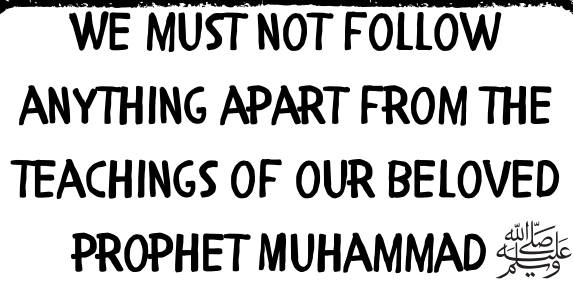 WE MUST NOT FOLLOW
ANYTHING APART FROM THE
TEACHINGS OF OUR BELOVED
PROPHET MUHAMMAD صلى الله عليه وسلم